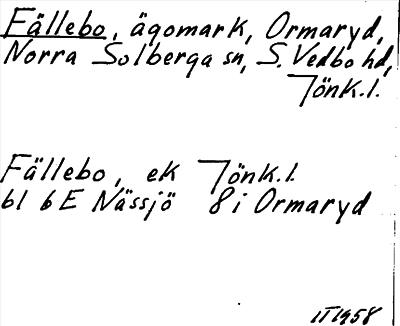 Fällebo, ägomark, Ormaryd,
Norra Solberga sn, S. Vedbo hd,
Jönk.l.
Fällebo, ek Jönk.l.
bl 6E Nässjö 8i Ormaryd
IT 1958